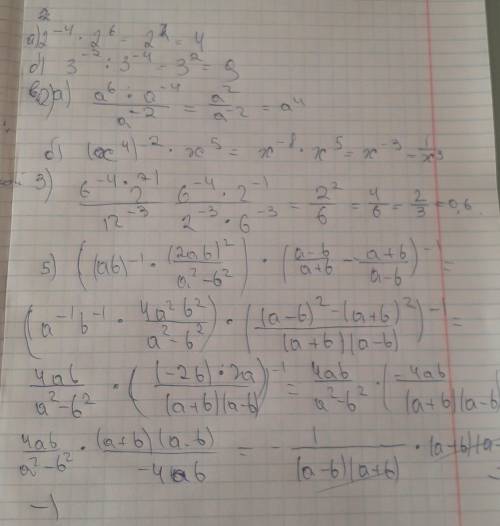 2
а) 2^-4 · 2^6 = 2^2 = 4
б) 3^-2 : 3^-4 = 3^2 = 9
2) а) (a^6 · a^-4)/(a^-2) = a^2/a^-2 = a^4
б) (x^4)^-2 · x^5 = x^-8 · x^5 = x^-3 = 1/x^3
3) (6^-4 · 2^-1)/(12^-3) (6^-4 · 2^-1)/(2^-3 · 6^-3) = 2^2/6 = 4/6 = 2/3 = 0,6
5) ((ab)^-1 · (2ab)^2/(a^2-b^2)) · ((a-b)/(a+b) - (a+b)/(a-b))^-1 =
(a^-1 b^-1 · 4a^2b^2/(a^2-b^2)) · (((a-b)^2-(a+b)^2)/((a+b)(a-b)))^-1 =
4ab/(a^2-b^2) · ((-2b)·2a/((a+b)(a-b)))^-1 = 4ab/(a^2-b^2) · (-4ab/((a+b)(a-b)
4ab/(a^2-b^2) · (a+b)(a-b)/(-4ab) = - 1/((a-b)(a+b)) · (a+b)(a-
-1